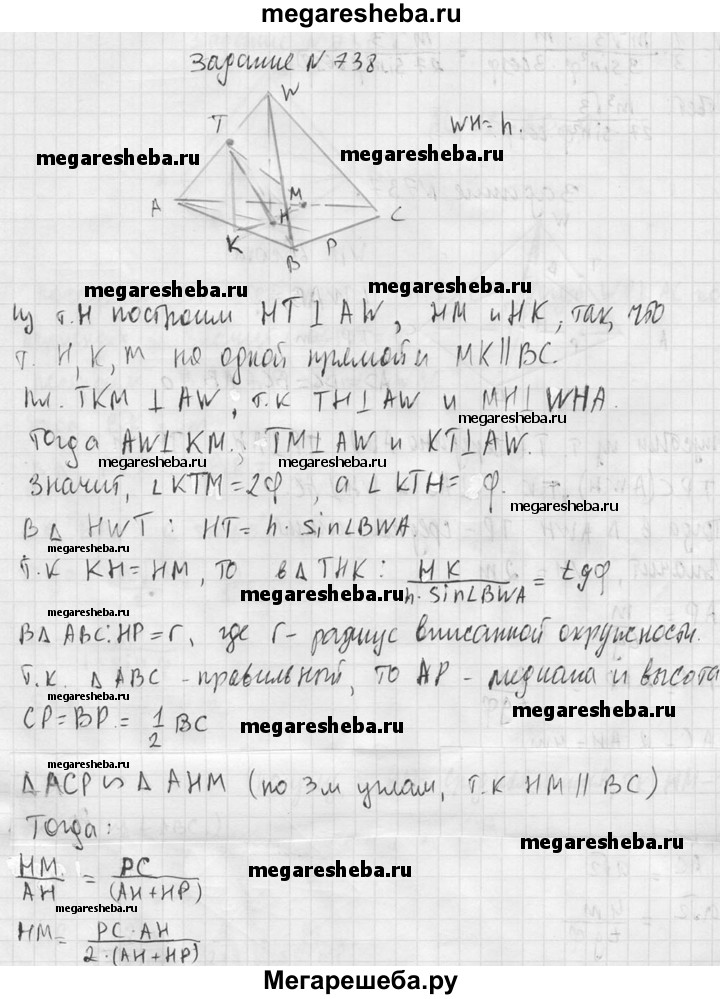 megaresheba.ru
Задание N 738
W
T
WH = h.
megaresheba.ru
megaresheba.ru
A
M
H
C
K
B
P
megaresheba.ru
megaresheba.ru
Из т.H построим HT⊥AW, HM и HK, так, что
т. H, K, M на одной прямой и MK||BC.
Пл. TKM ⊥ AW, т.к TH⊥AW и MH⊥WHA.
megaresheba.ru
Тогда AW⊥KM, TM⊥AW и KT⊥AW.
megaresheba.ru
megaresheba.ru
Значит, ∠KTM=2φ, а ∠KTH= φ.
megaresheba.ru
В Δ HWT: HT= h· sin∠BWA
megaresheba.ru
Т.к KH=HM, то в Δ THK: MK / h·sin∠BWA = tgφ
megaresheba.ru
megaresheba.ru
В Δ ABC: HP=r, где r- радиус вписанной окружности.
megaresheba.ru
Т.к. Δ ABC - правильный, то AP - медиана и высота
megaresheba.ru
CP=BP= 1/2 BC
megaresheba.ru
megaresheba.ru
megaresheba.ru
ΔACP ∽ Δ AHM (по 3м углам, т.к HM || BC)
Тогда:
megaresheba.ru
HM / AH = PC / (AH+HP)
megaresheba.ru
megaresheba.ru
HM= PC·AH / 2·(AH+HP)
megaresheba.ru
Мегарешеба.ру